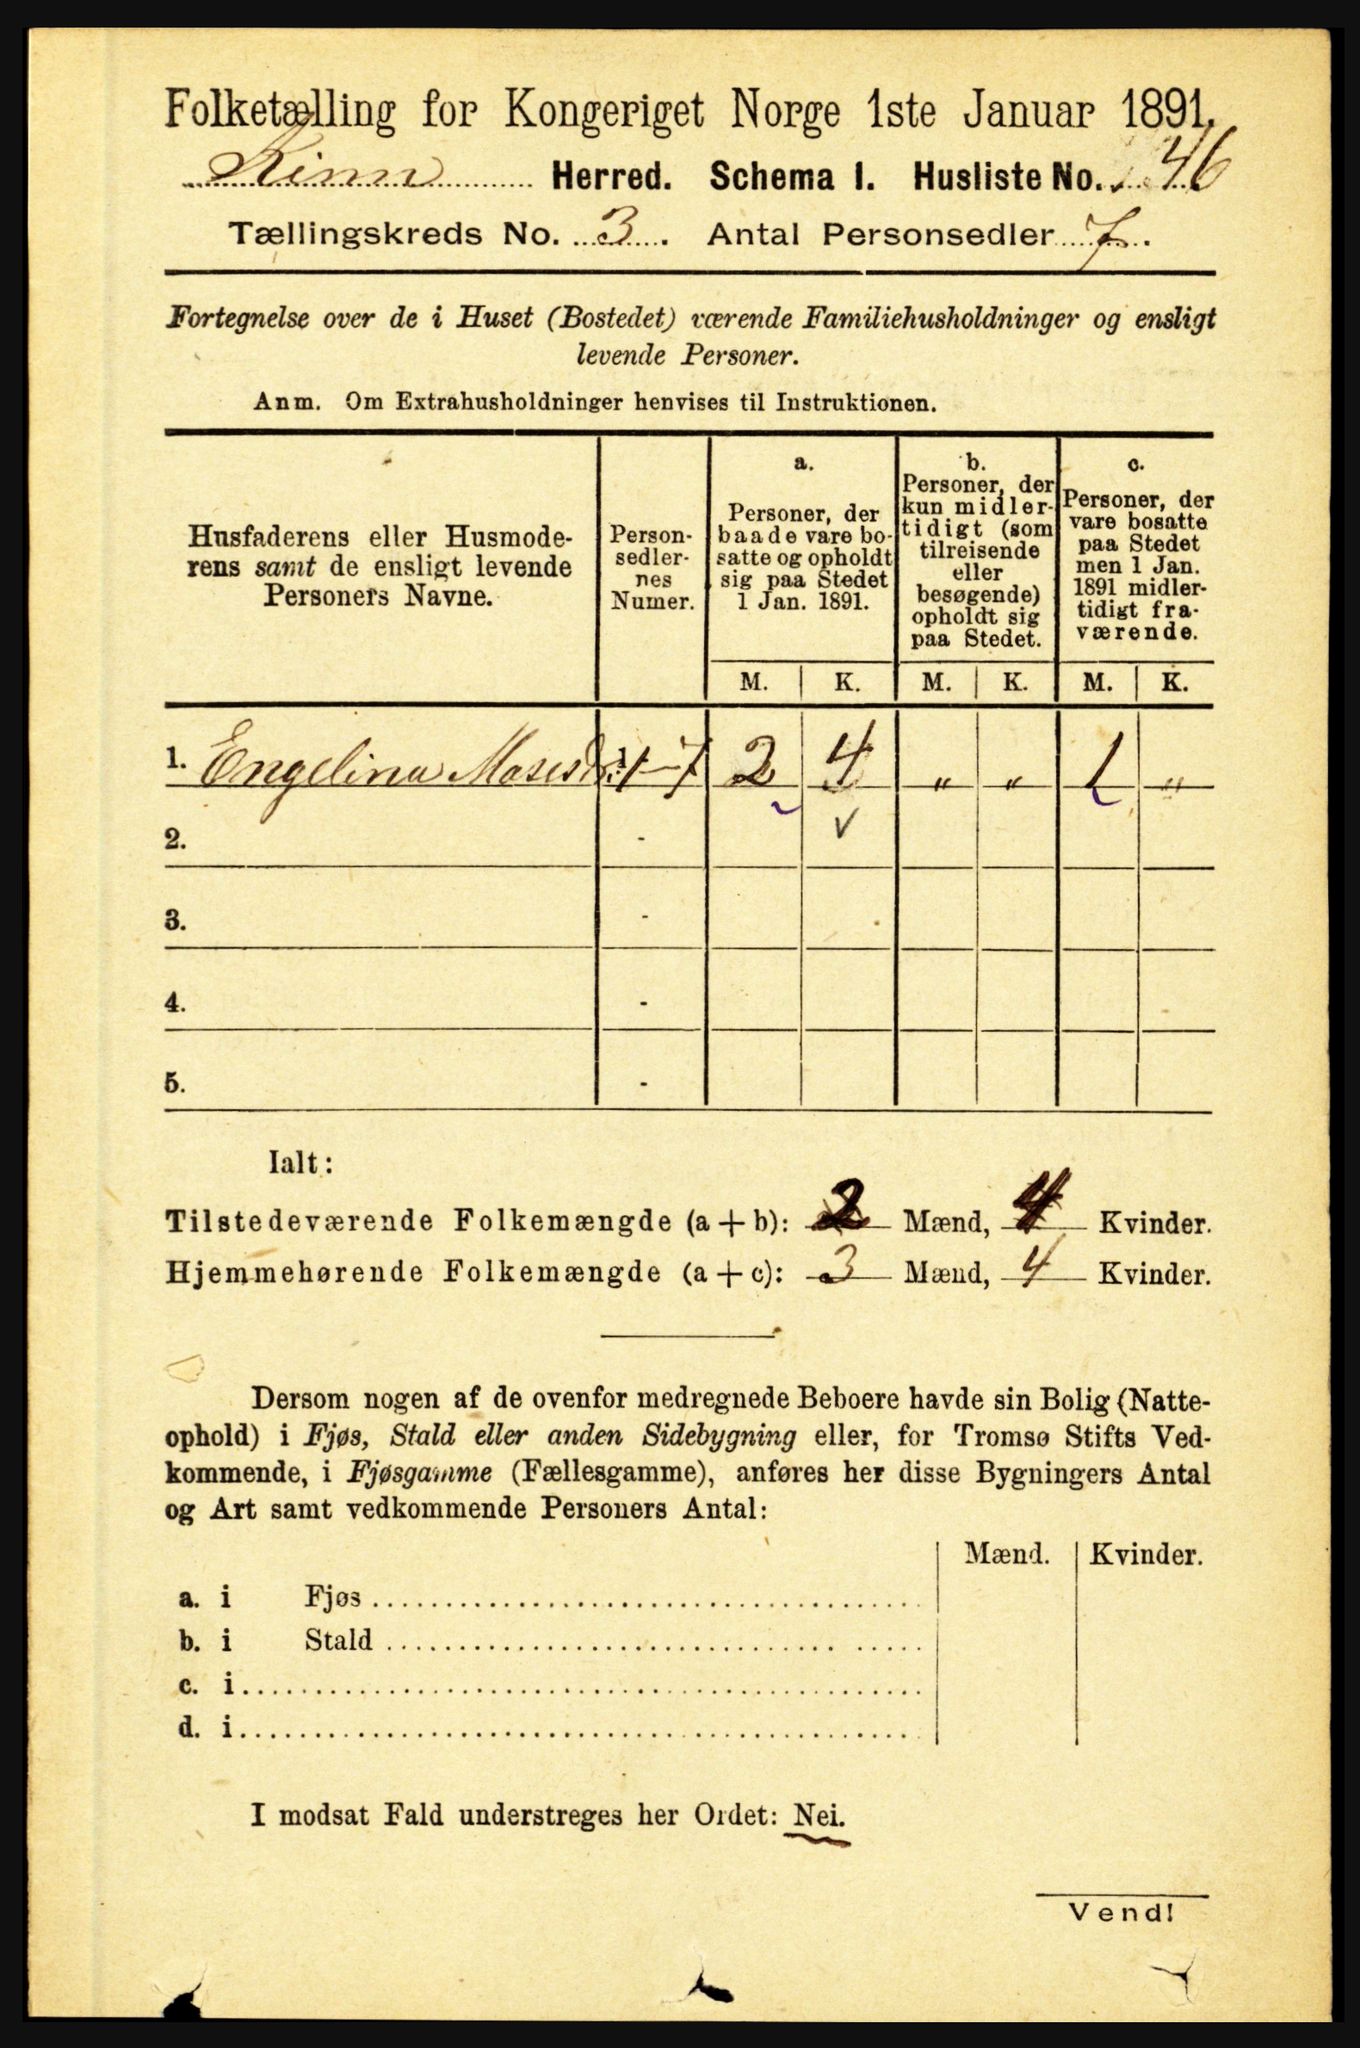 Folketælling for Kongeriget Norge 1ste Januar 1891.
Kinn Herred. Schema I. Husliste No. 46
Tællingskreds No. 3. Antal Personsedler 7.
Fortegnelse over de i Huset (Bostedet) værende Familiehusholdninger og ensligt
levende Personer.
Anm. Om Extrahusholdninger henvises til Instruktionen.
Husfaderens eller Husmode-
rens samt de ensligt levende
Personers Navne.
Person-
sedler-
nes
Numer.
a.
Personer, der
baade vare bo-
satte og opholdt
sig paa Stedet
1 Jan. 1891.
b.
Personer, der
kun midler-
tidigt (som
tilreisende
eller
besøgende)
opholdt sig
paa Stedet.
c.
Personer, der
vare bosatte
paa Stedet
men 1 Jan.
1891 midler-
tidigt fra-
værende.
M. K. M. K. M. K.
1. Engelina Moses 1-7 2 4 " " 1 "
2. -
3. -
4. -
5. -
Ialt:
Tilstedeværende Folkemængde (a+b): 2 Mænd, 4 Kvinder.
Hjemmehørende Folkemængde (a+c): 3 Mænd, 4 Kvinder.
Dersom nogen af de ovenfor medregnede Beboere havde sin Bolig (Natte-
ophold) i Fjøs, Stald eller anden Sidebygning eller, for Tromsø Stifts Ved-
kommende, i Fjøsgamme (Fællesgamme), anføres her disse Bygningers Antal
og Art samt vedkommende Personers Antal:
Mænd. Kvinder.
a. i Fjøs
b. i Stald
c. i
d. i
I modsat Fald understreges her Ordet: Nei.
Vend!